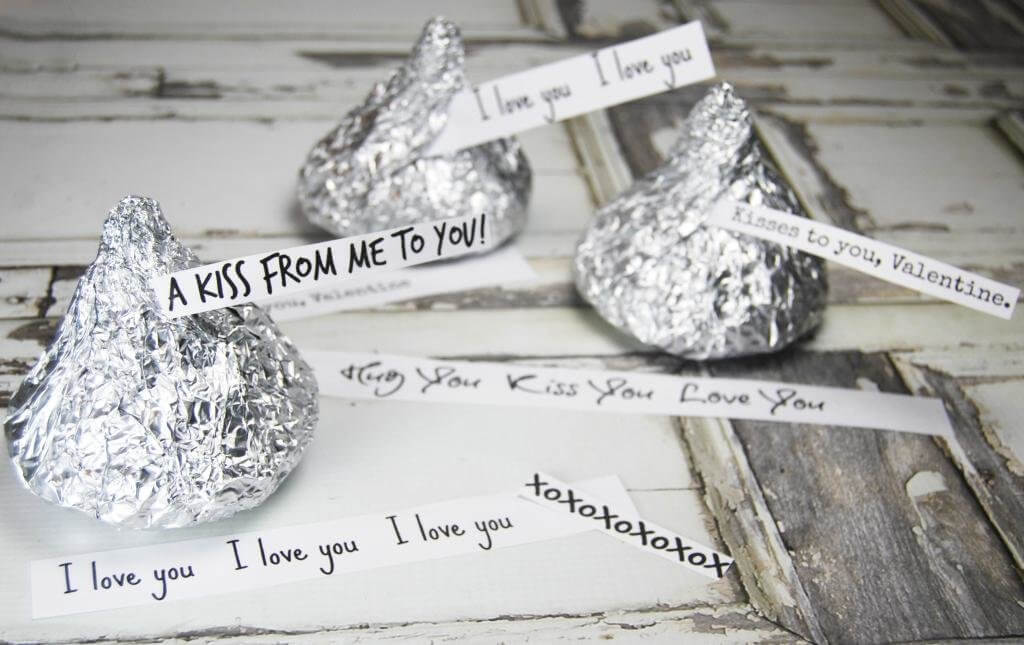 I love you I love you
Kisses to you, Valentine.
A KISS FROM ME TO YOU!
you, Valentine
Hug You Kiss You Love You
XOXOXOXOXOX
I love you I love you I love you